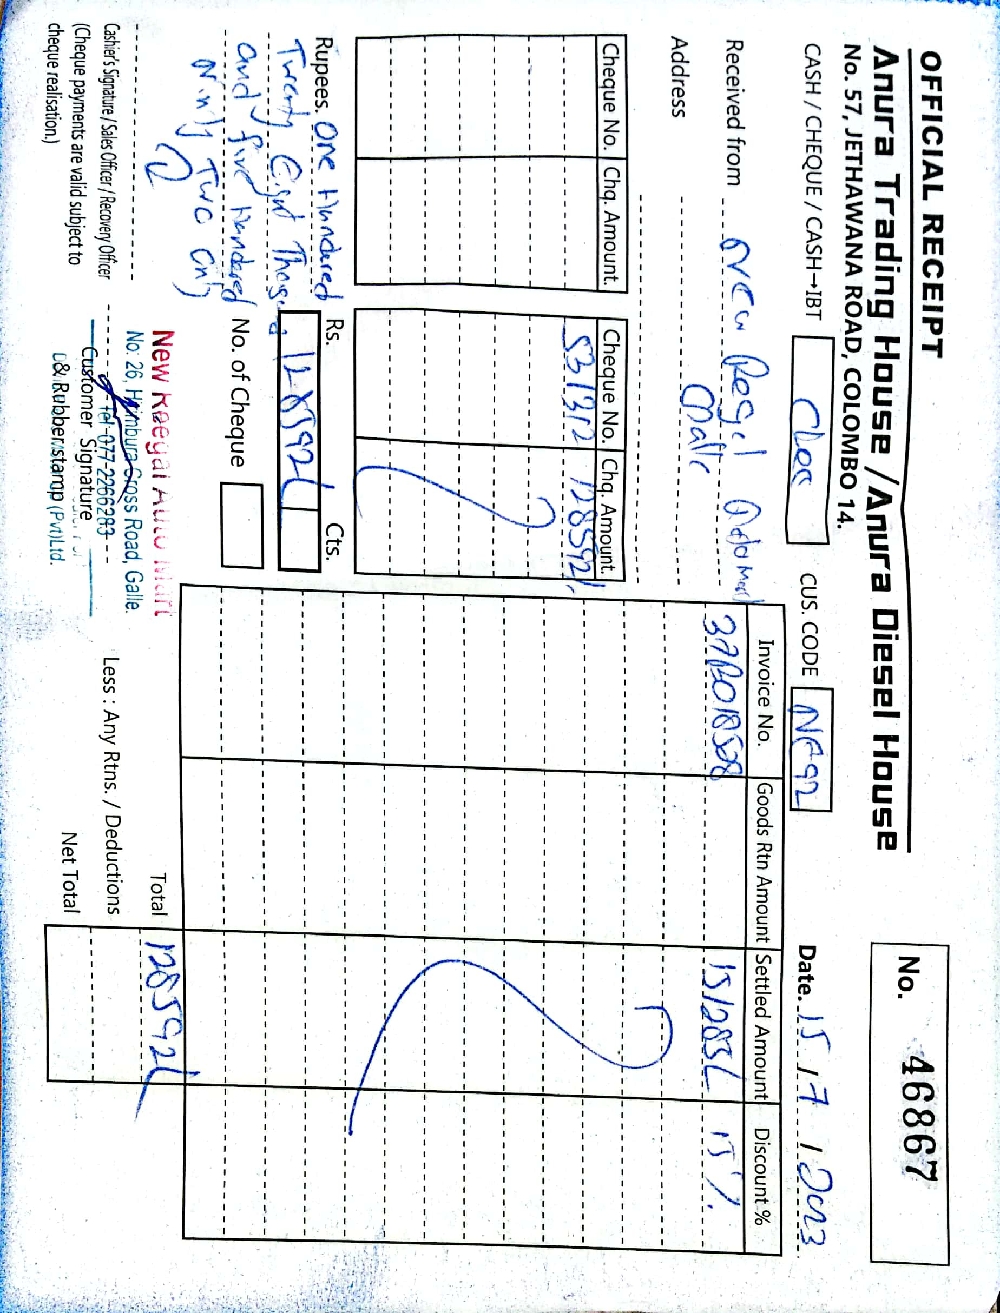 OFFICIAL RECEIPT
Anura Trading House / Anura Diesel House
No. 57, JETHAWANA ROAD, COLOMBO 14.
No. 46867
CASH / CHEQUE / CASH→IBT
CUS. CODE NE92
Date. 15 / 7 / 2023
Received from New Regal
Address Galle
Cheque No. Chq. Amount. Cheque No. Chq. Amount.
531312 128592/-
Invoice No. Goods Rtn Amount Settled Amount Discount %
151285/- 15%
Rupees. One Hundered
Twenty Eight
and five Hundered
Ninty Two Only
Rs. Cts.
128592/-
No. of Cheque
Total 128592/-
Less : Any Rtns. / Deductions
Net Total
New Raegal Auto Mart
No: 26, Cross Road, Galle.
Tel-077-2266283
Cashier's Signature / Sales Officer / Recovery Officer
(Cheque payments are valid subject to
cheque realisation.)
Customer Signature
& Rubber stamp (Pvt) Ltd.